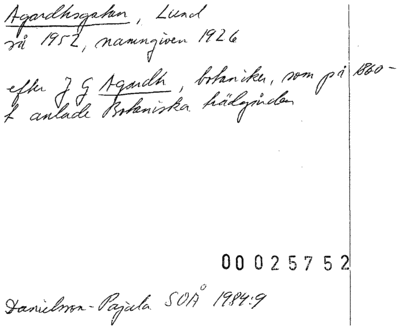 Agardhsgatan, Lund
så 1952, namngiven 1926
efter J G Agardh, botaniker, som på 1860-
t anlade Botaniska trädgården
00025752
Danielsson-Pajala SOÅ 1984:9